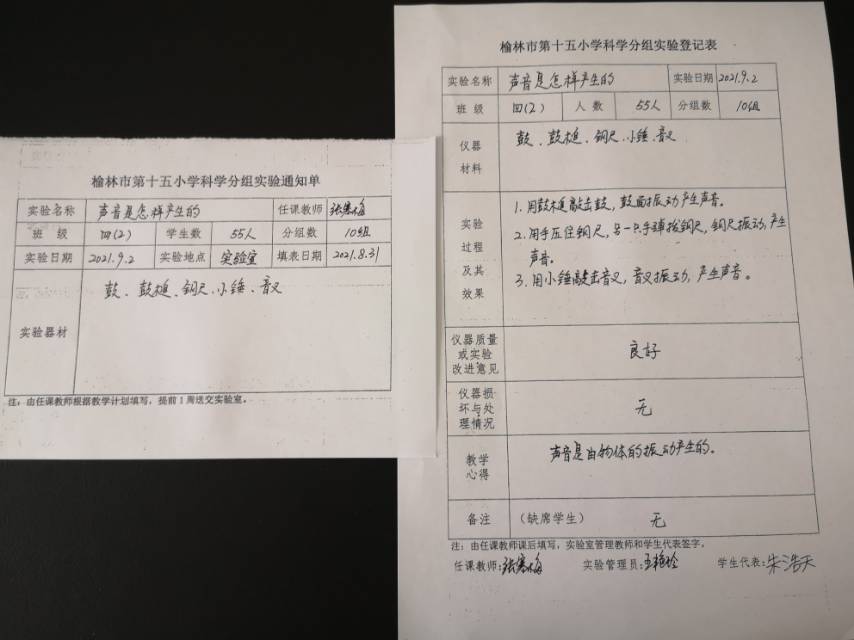 榆林市第十五小学科学分组实验通知单
实验名称 声音是怎样产生的 任课教师 张寒梅
班 级 四(2) 学生数 55人 分组数 10组
实验日期 2021.9.2 实验地点 实验室 填表日期 2021.8.31
实验器材 鼓、鼓槌、钢尺、小锤、音叉
注：由任课教师根据教学计划填写，提前1周送交实验室。
榆林市第十五小学科学分组实验登记表
实验名称 声音是怎样产生的 实验日期 2021.9.2
班 级 四(2) 人 数 55人 分组数 10组
仪器
材料
鼓、鼓槌、钢尺、小锤、音叉
实验
过程
及其
效果
1. 用鼓槌敲击鼓，鼓面振动产生声音。
2. 用手压住钢尺，另一只手弹拨钢尺，钢尺振动，产生
声音。
3. 用小锤敲击音叉，音叉振动，产生声音。
仪器质量
或实验
改进意见
良好
仪器损
坏与处
理情况
无
教学
心得
声音是由物体的振动产生的。
备注 （缺席学生） 无
注：由任课教师课后填写，实验室管理教师和学生代表签字。
任课教师：张寒梅 实验管理员：王艳玲 学生代表：朱浩天